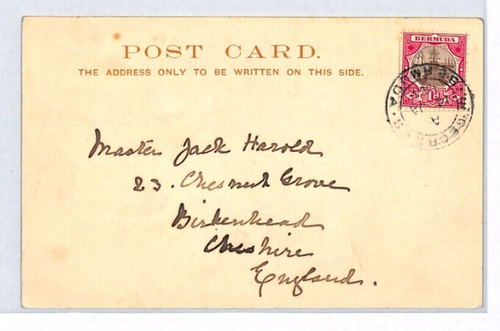 POST CARD.
THE ADDRESS ONLY TO BE WRITTEN ON THIS SIDE.
BERMUDA
1d
Master Jack Harold
23. Chesnut Grove
Birkenhead
Cheshire
England.